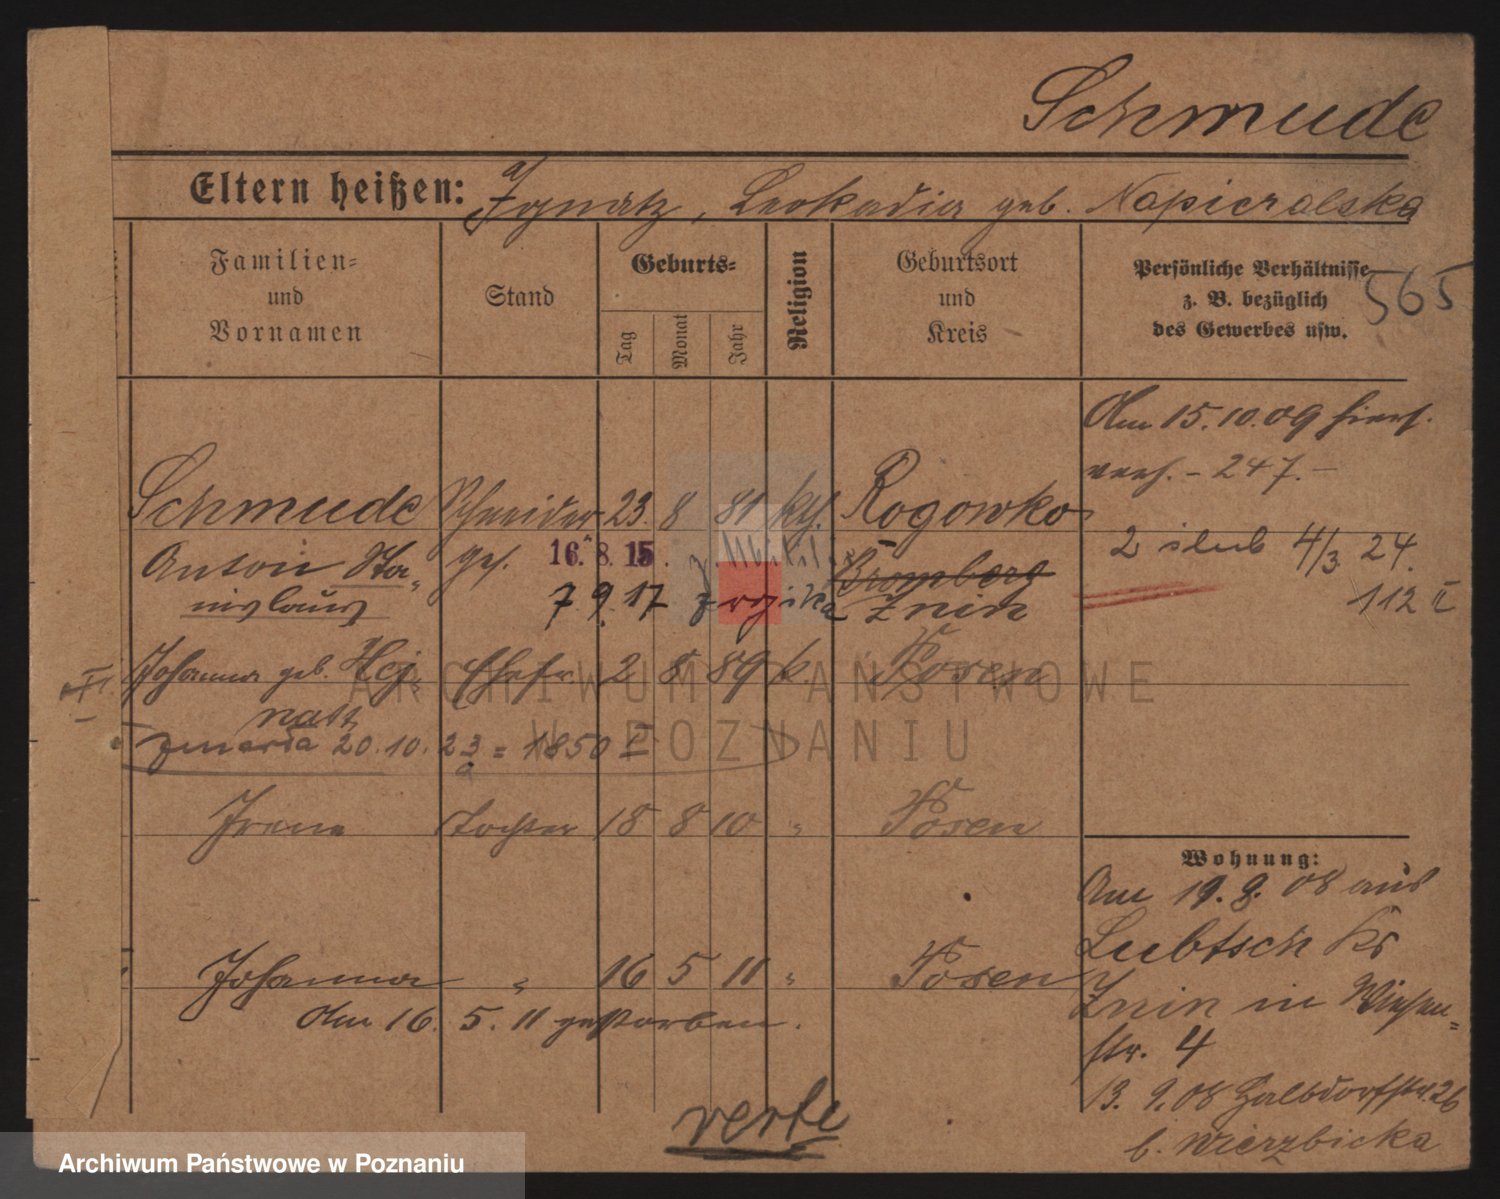 Schmude
Eltern heißen: a/ Ignatz, Leokadia geb. Napieralska
Familien= und Vornamen
Stand
Geburts=
Tag
Monat
Jahr
Religion
Geburtsort und Kreis
Persönliche Verhältnisse
z. B. bezüglich
des Gewerbes usw.
565
Am 15.10.09 hiers.
verh. – 247. –
Schmude Schneider 23. 8 81 kth. Rogowko
Anton Sta= ges. 16. 8. 15. Bromberg
nislaus 7 9. 17 Znin
2 slub 4/3 24.
112 I
Johanna geb. Hej= Ehefr. 2 8 89 k. Posen
natt
zmarła 20.10.23 = 1850 I
Irene Tochter 18 8 10 " Posen
Johanna " 16 5 11 " Posen
Am 16. 5. 11 gestorben.
Wohnung:
Am 19. 9. 08 aus
Lubtsch Kr
Znin in Wiesen=
str. 4
13. 9. 08 Halbdorfstr. 26
b. Wierzbicka
verte
ARCHIWUM PAŃSTWOWE
W POZNANIU
Archiwum Państwowe w Poznaniu